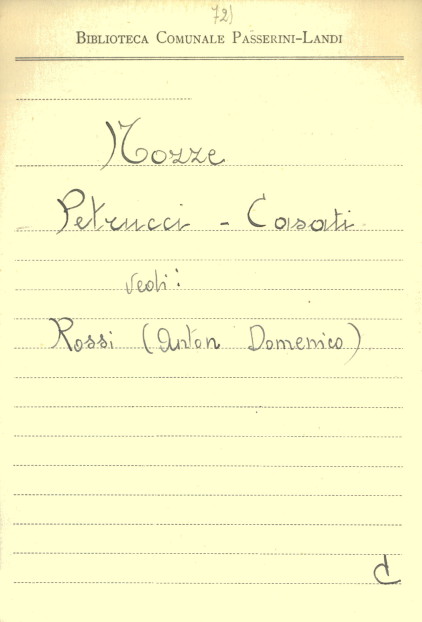 72)
BIBLIOTECA COMUNALE PASSERINI-LANDI
Nozze
Petrucci - Casati
vedi:
Rossi (Anton Domenico)
d